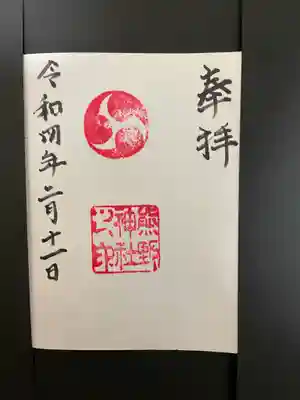 奉拝
熊野
神社
之印
令和四年二月十一日